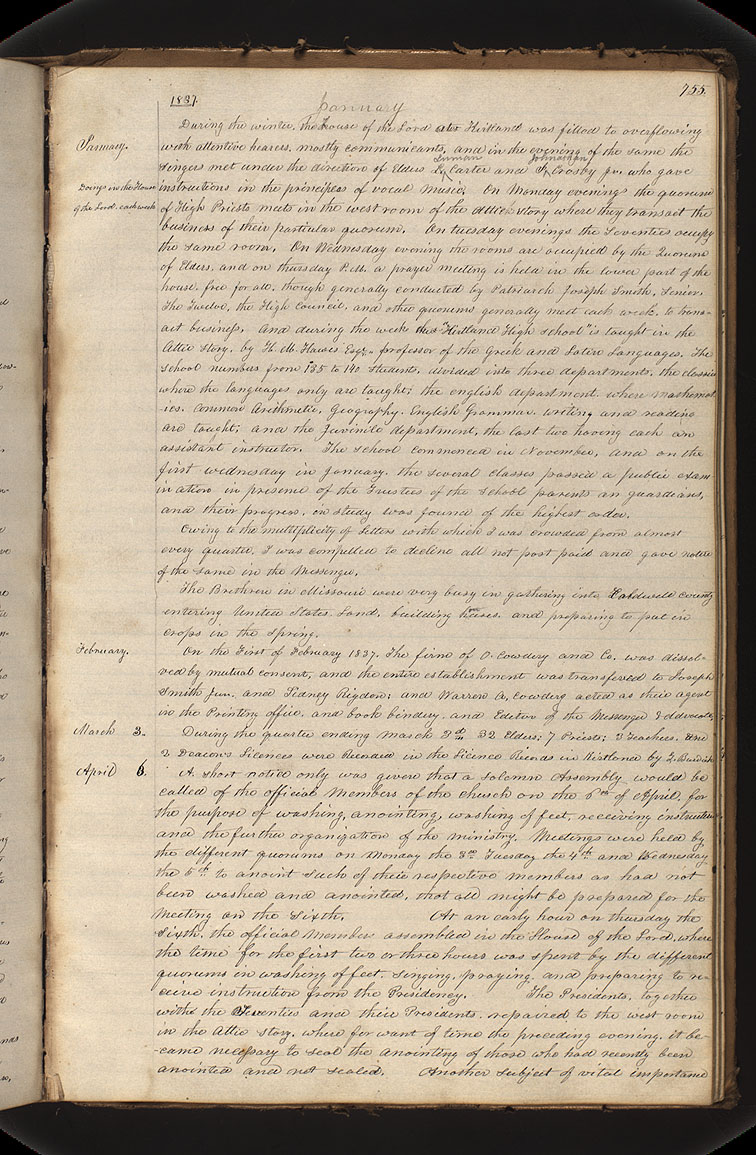 755.
1837.
January
January.
During the winter, the house of the Lord at Kirtland was filled to overflowing
with attentive hearers, mostly communicants, and in the evening of the same the
Luman Johnathan
Singers met under the direction of Elders L. Carter and J. Crosby Jr. who gave
Doings in the House
of the Lord. each week
instructions in the principles of vocal music. On Monday evenings the quorum
of High Priests meets in the west room of the attic story where they transact the
business of their particular quorum. On tuesday evenings the Seventies occupy
the same room. On Wednesday evening the rooms are occupied by the Quorum
of Elders. and on thursday P.M. a prayer meeting is held in the lower part of the
house. free for all. though generally conducted by Patriarch Joseph Smith, Senior.
The Twelve, the High Council, and other quorums generally meet each week, to trans-
act business. And during the week the "Kirtland High School" is taught in the
Attic Story. by H. M. Hawes Esqr. professor of the Greek and Latin Languages. The
school numbers from 135 to 140 students, divided into three departments. the classic
where the languages only are taught; the english department. where mathemat
ics. Common Arithmetic, Geography. English Grammar. writing and reading
are taught; and the Juvenile department, the last two having each an
assistant instructor. The school commenced in November, and on the
first wednesday in January. the several classes passed a public exam
ination in presence of the Trustees of the School parents an guardians,
and their progress, in study was found of the highest order.
Owing to the multiplicity of Letters with which I was crowded from almost
every quarter, I was compelled to decline all not post paid and gave notice
of the same in the Messenger.
The Brethren in Missouri were very busy in gathering into Caldwell county
entering United States. Land. building houses. and preparing to put in
crops in the Spring.
February.
On the First of February 1837. the firm of O. Cowdery and Co. was dissol-
ved by mutual consent, and the entire establishment was transfered to Joseph
Smith Jun. and Sidney Rigdon; and Warren A. Cowdery acted as their agent
in the Printing office. and book bindery. and Editor of the Messenger & Advocate.
March 3.
During the quarter ending March 3rd 32 Elders; 7 Priests; 3 Teachers. and
2 Deacons Licences were Recorded in the Licence Records in Kirtland by
April 6.
A short notice only was given that a solemn Assembly would be
called of the official Members of the church on the 6th of April. for
the purpose of washing, anointing, washing of feet, receiving instructions
and the further organization of the ministry. Meetings were held by
the different quorums on Monday the 3rd Tuesday the 4th and Wednesday
the 5th to anoint such of their respective members as had not
been washed and anointed, that all might be prepared for the
Meeting on the Sixth. At an early hour on thursday the
Sixth. the official Member assembled in the House of the Lord, where
the time for the first two or three hours was spent by the different
quorums in washing of feet. singing, praying, and preparing to re-
ceive instruction from the Presidency. The Presidents, together
with the Seventies and their Presidents. repaired to the west room
in the Attic Story. where for want of time the preceding evening, it be-
came necessary to seal the anointing of those who had recently been
anointed and not sealed. Another subject of vital importance